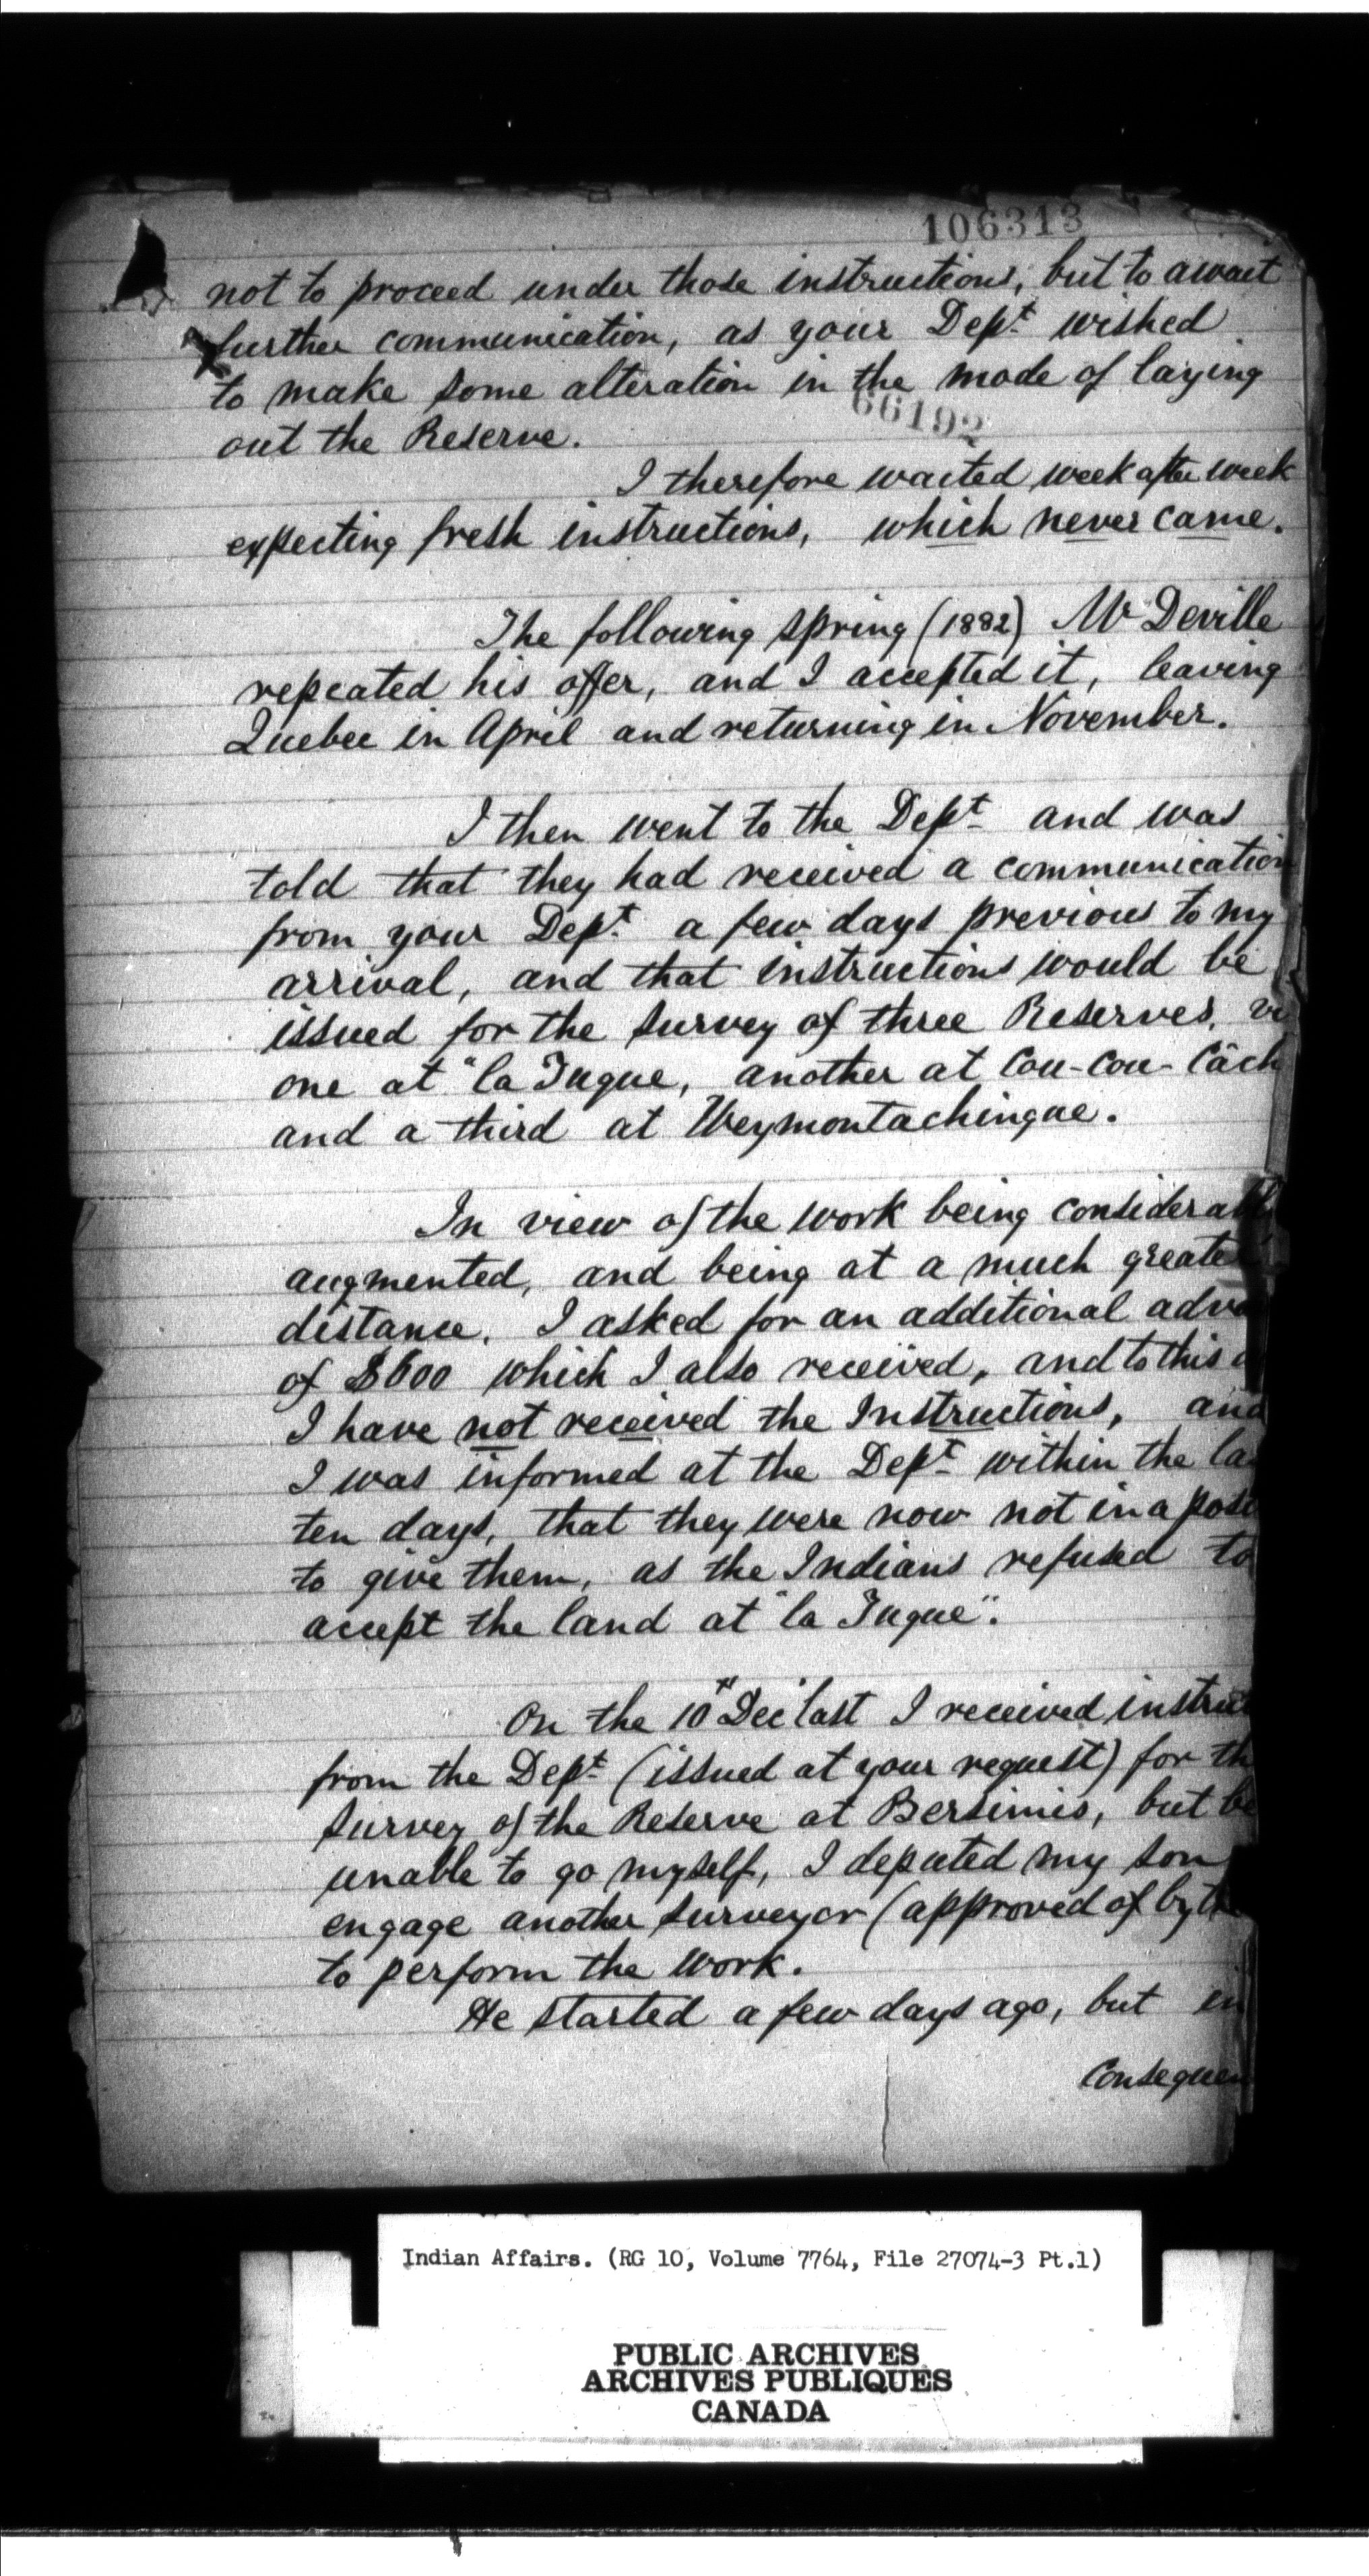 106313
not to proceed under those instructions, but to await
further communication, as your Dept wished
to make some alteration in the mode of laying
66192
out the Reserve.
I therefore waited week after week
expecting fresh instructions, which never came.
The following spring (1882) Mr Deville
repeated his offer, and I accepted it, leaving
Quebec in April and returning in November.
I then went to the Dept and was
told that they had received a communication
from your Dept a few days previous to my
arrival, and that instructions would be
issued for the survey of three Reserves, vi
one at "la Tuque, another at Cou-Cou-Câch
and a third at Weymontachingue.
In view of the work being considerabl
augmented, and being at a much greater
distance, I asked for an additional adva
of $600 which I also received, and to this d
I have not received the Instructions, and
I was informed at the Dept within the las
ten days, that they were now not in a posi
to give them, as the Indians refused to
accept the land at "la Tuque".
On the 10th Dec last I received instruc
from the Dept (issued at your request) for th
survey of the Reserve at Bersimis, but be
unable to go myself, I deputed my son
engage another surveyor (approved of by th
to perform the work.
He started a few days ago, but in
Consequen
Indian Affairs. (RG 10, Volume 7764, File 27074-3 Pt.1)
PUBLIC ARCHIVES
ARCHIVES PUBLIQUES
CANADA